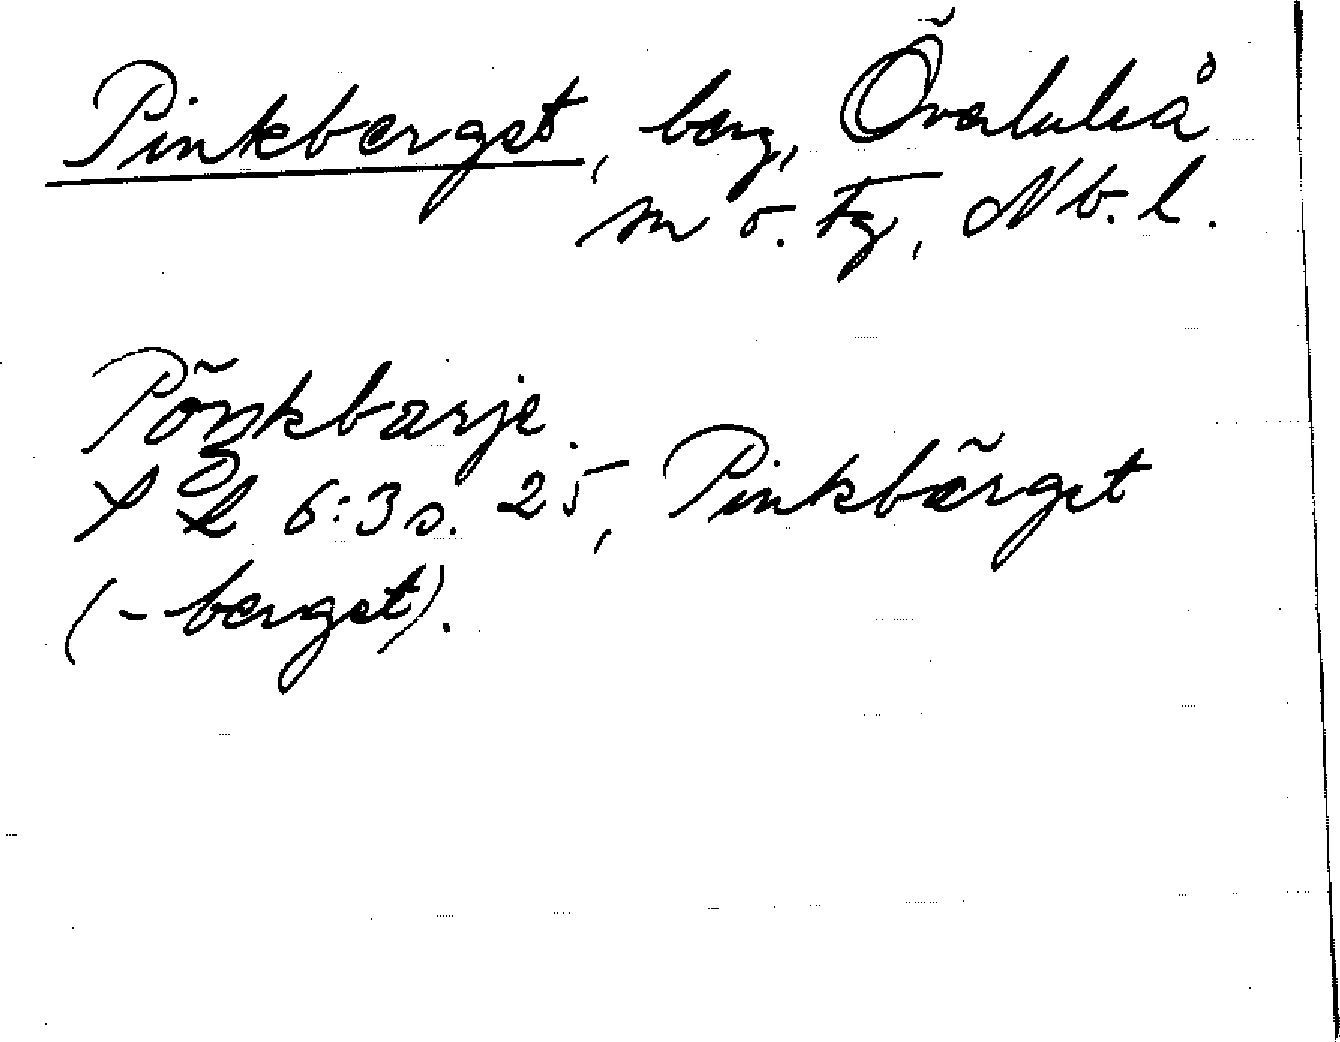 Pinkberget, berg, Överluleå
sn o. tg, Nbl.
Pönkbarje
6:3 s. 25, Pinkbärget
(-berget).